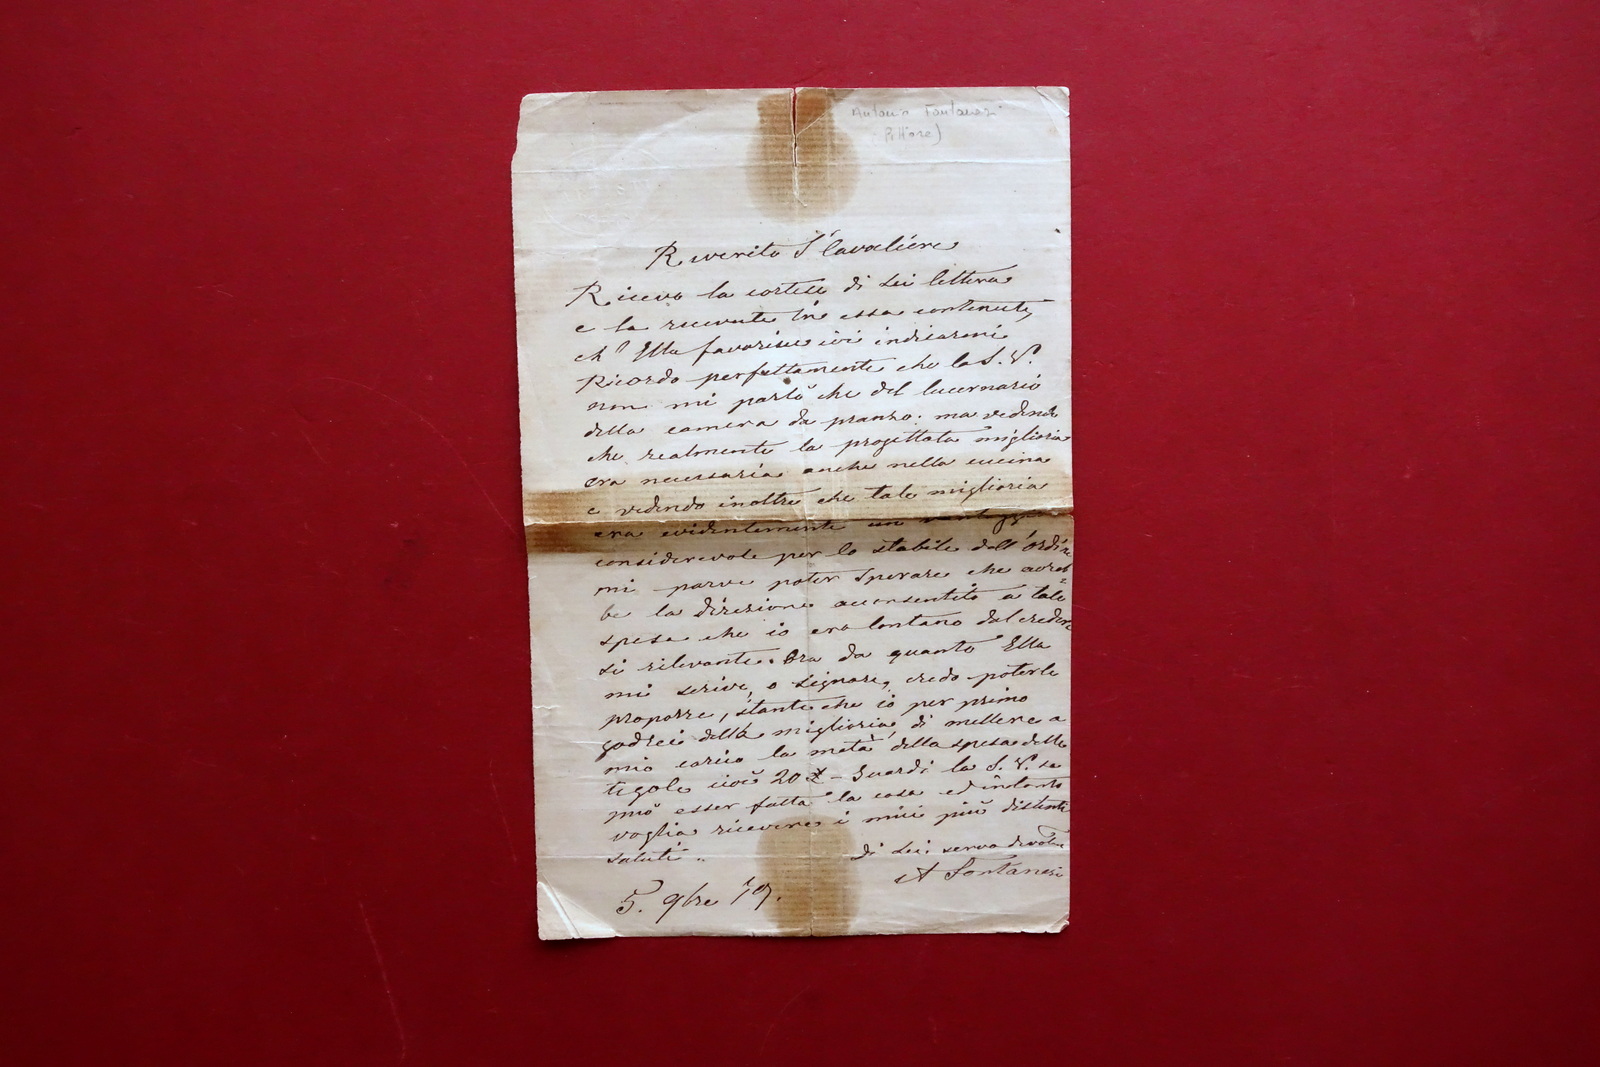 Antonio Fontanesi
(Pittore)
Riverito S.r Cavaliere
Ricevo la cortese di Lei lettera
e la ricevuta in essa contenuta,
ch' Ella favorisce ivi indicarmi
Ricordo perfettamente che la S. V.
non mi parlò che del lucernario
della camera da pranzo: ma vedendo
che realmente la progettata miglioria
era necessaria anche nella cucina
e vedendo inoltre che tale miglioria
era evidentemente un vantaggio
considerevole per lo stabile dell'Ordine
mi parve poter sperare che avreb=
be la direzione acconsentito a tale
spesa che io era lontano dal credere
si rilevante. Ora da quanto Ella
mi scrive, o Signore, credo poterle
proporre, stante che io per primo
godrei della miglioria, di mettere a
mio carico la metà della spesa delle
tegole cioè 20 £ - Guardi la S. V. se
può esser fatta la cosa ed intanto
voglia ricevere i miei più distinti
saluti.
di Lei. servo devotmo
A Fontanesi
5. 9bre 79.